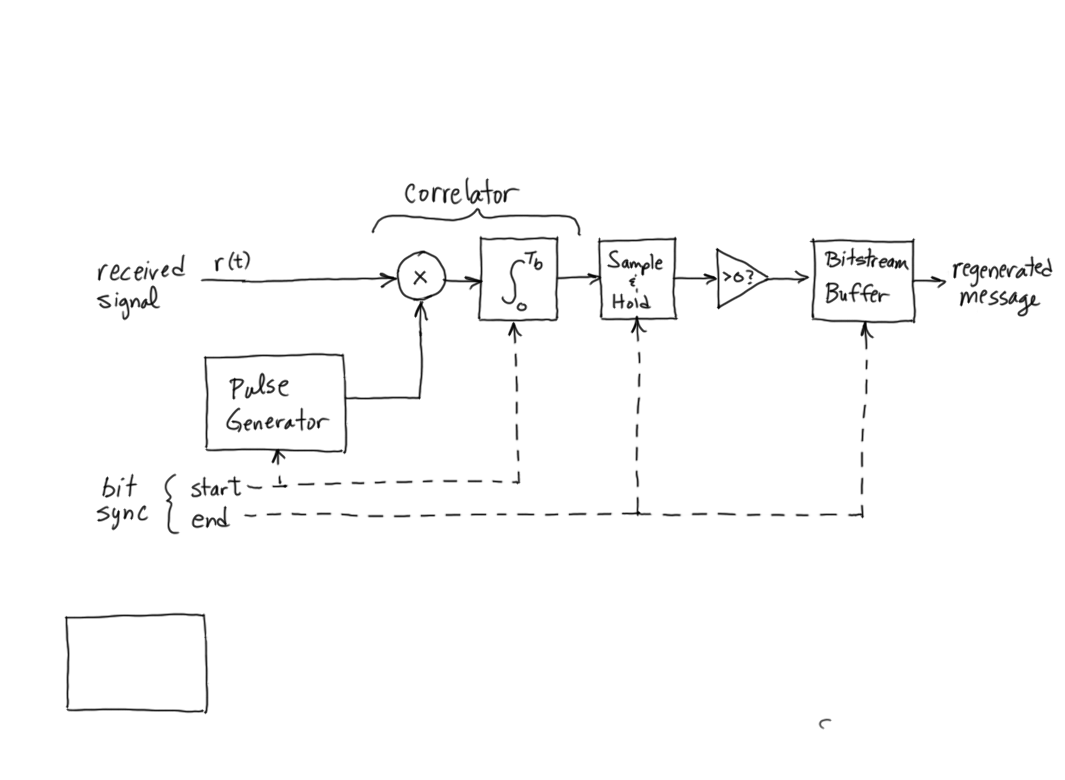 Correlator
received
signal
r(t)
×
∫₀ᵀᵇ
Sample
&
Hold
>0?
Bitstream
Buffer
regenerated
message
Pulse
Generator
bit
sync
start
end